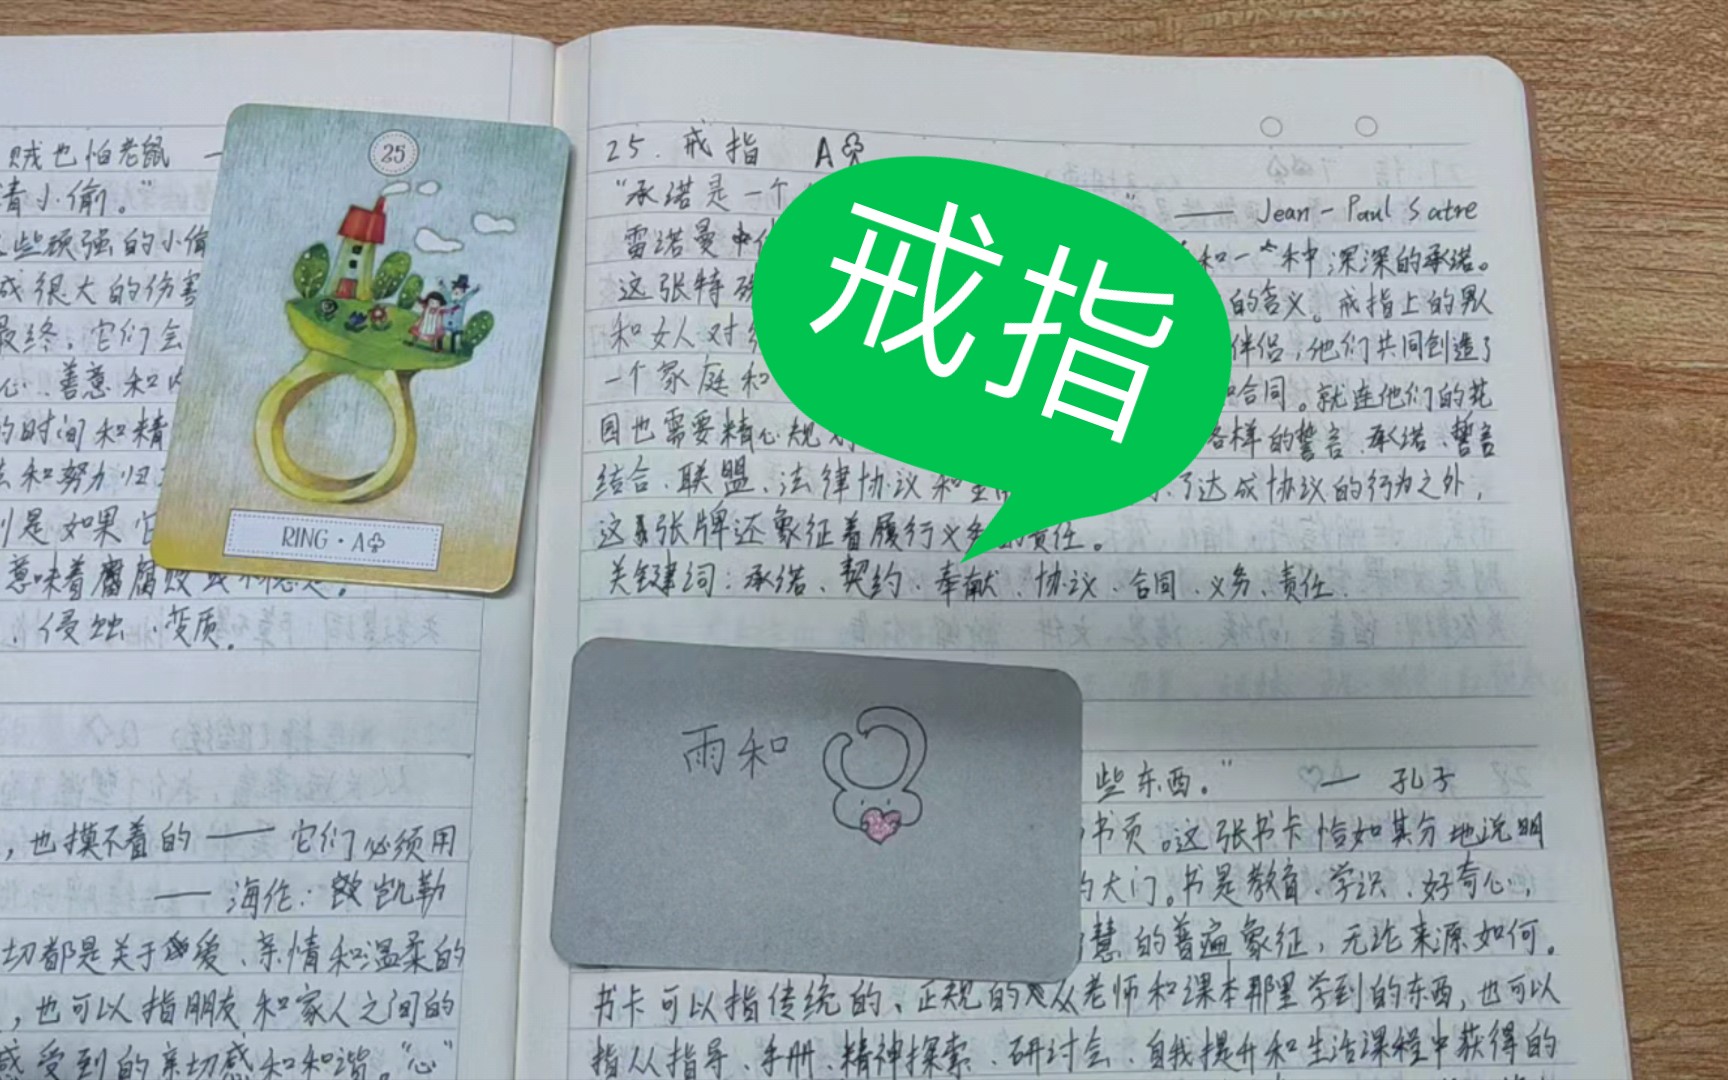 贼也怕老鼠 —
请小偷。”
些顽强的小偷
成很大的伤害
最终，它们会
心、善意和
的时间和精
和努力归
别是如果它
意味着腐腐败
、侵蚀、变质。
，也摸不着的 —— 它们必须用
—— 海伦·凯勒
切都是关于爱、亲情和温柔的
，也可以指朋友和家人之间的
感受到的亲切感和和谐。“心”
25
RING · A♣
25. 戒指 A♣
“承诺是一个 ” —— Jean-Paul Satre
雷诺曼中 和一种深深的承诺。
这张特 的含义。戒指上的男人
和女人对 伴侣，他们共同创造了
一个家庭和 和合同。就连他们的花
园也需要精心规 各样的誓言、承诺、誓言
结合、联盟、法律协议和 了达成协议的行为之外，
这张牌还象征着履行义务 责任。
关键词：承诺、契约、奉献、协议、合同、义务、责任.
戒指
雨和
些东西。” — 孔子
书页。这张书卡恰如其分地说明
的大门。书是教育、学识、好奇心，
慧的普遍象征，无论来源如何。
书卡可以指传统的、正规的从老师和课本那里学到的东西，也可以
指从指导、手册、精神探索、研讨会、自我提升和生活课程中获得的